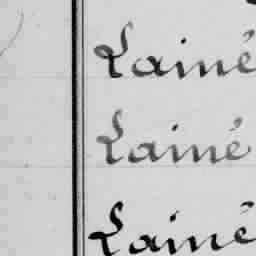 Lainé
Lainé
Lainé